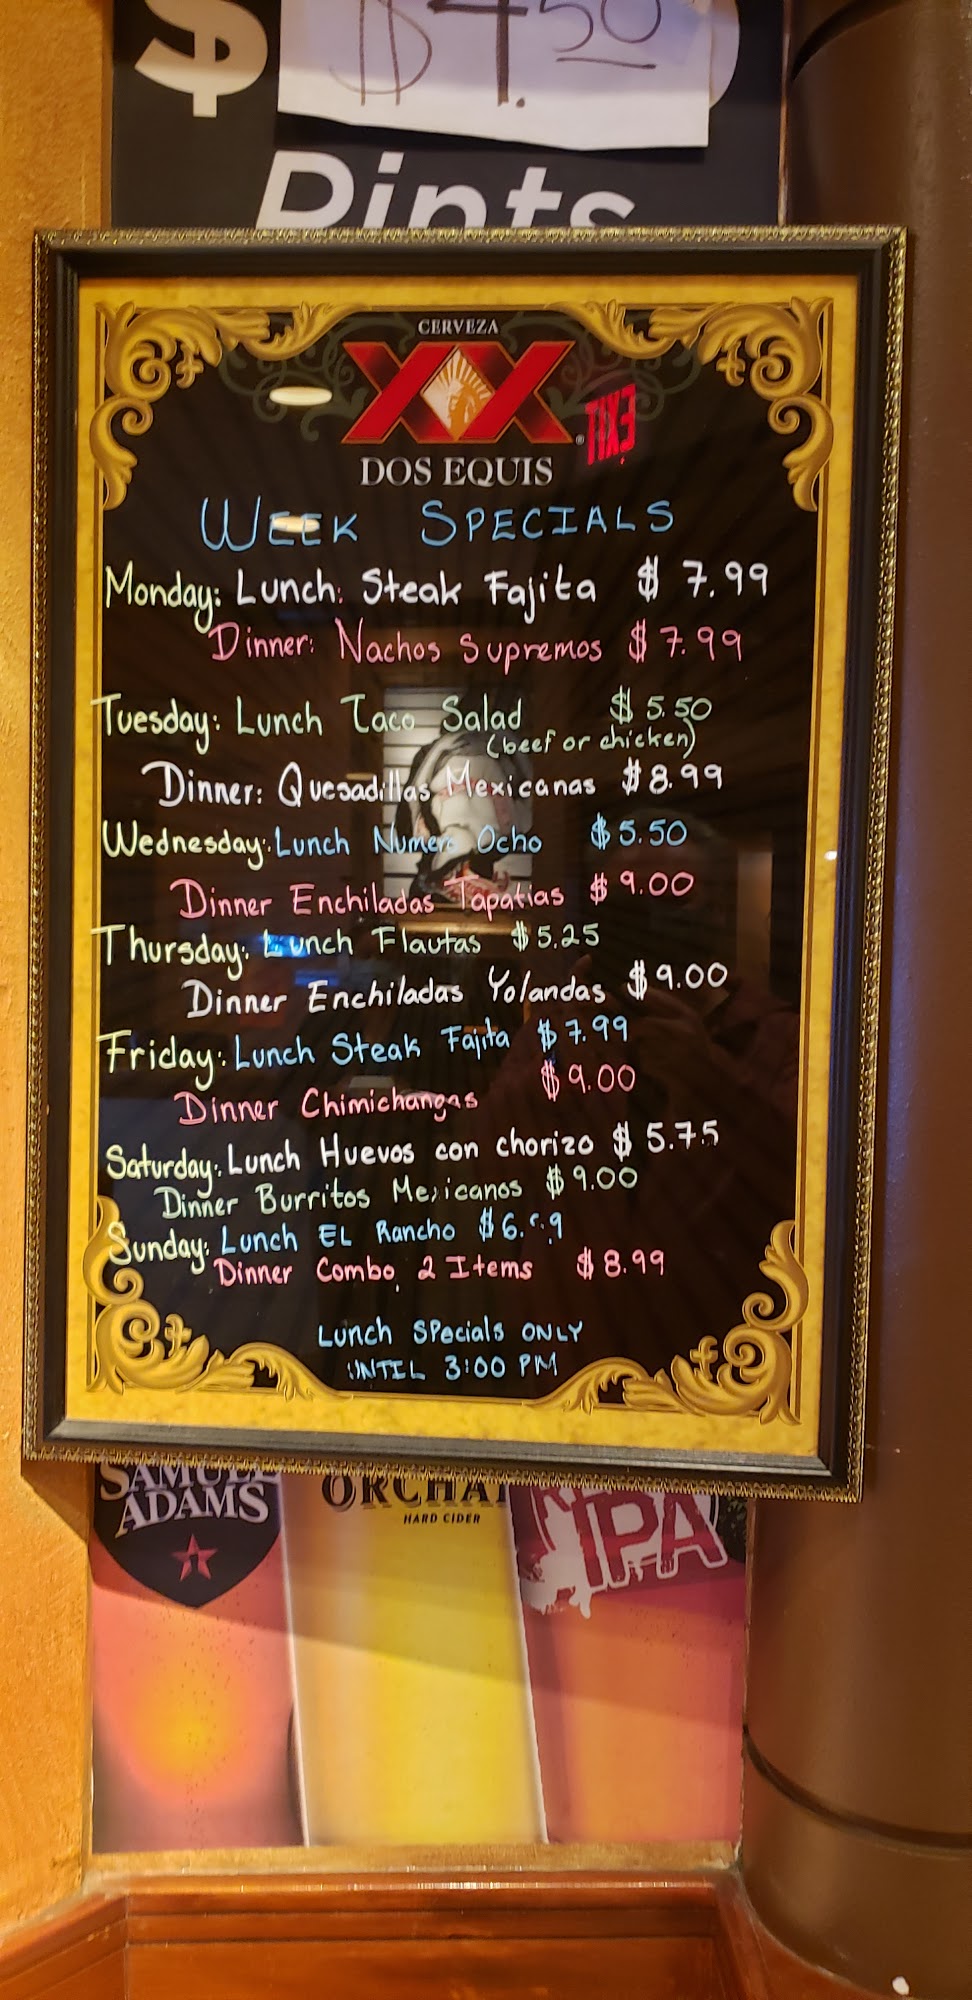 $ $4.50
Pints
CERVEZA
XX
DOS EQUIS
EXIT
WEEK SPECIALS
Monday: Lunch: Steak Fajita $ 7.99
Dinner: Nachos Supremos $ 7.99
Tuesday: Lunch Taco Salad $ 5.50
(beef or chicken)
Dinner: Quesadillas Mexicanas $ 8.99
Wednesday: Lunch Numero Ocho $ 5.50
Dinner Enchiladas Tapatias $ 9.00
Thursday: Lunch Flautas $ 5.25
Dinner Enchiladas Yolandas $ 9.00
Friday: Lunch Steak Fajita $ 7.99
Dinner Chimichangas $ 9.00
Saturday: Lunch Huevos con chorizo $ 5.75
Dinner Burritos Mexicanos $ 9.00
Sunday: Lunch EL Rancho
Dinner Combo, 2 Items $ 8.99
Lunch SPecials ONLY
UNTIL 3:00 PM
SAMUEL
ADAMS
HARD CIDER
IPA